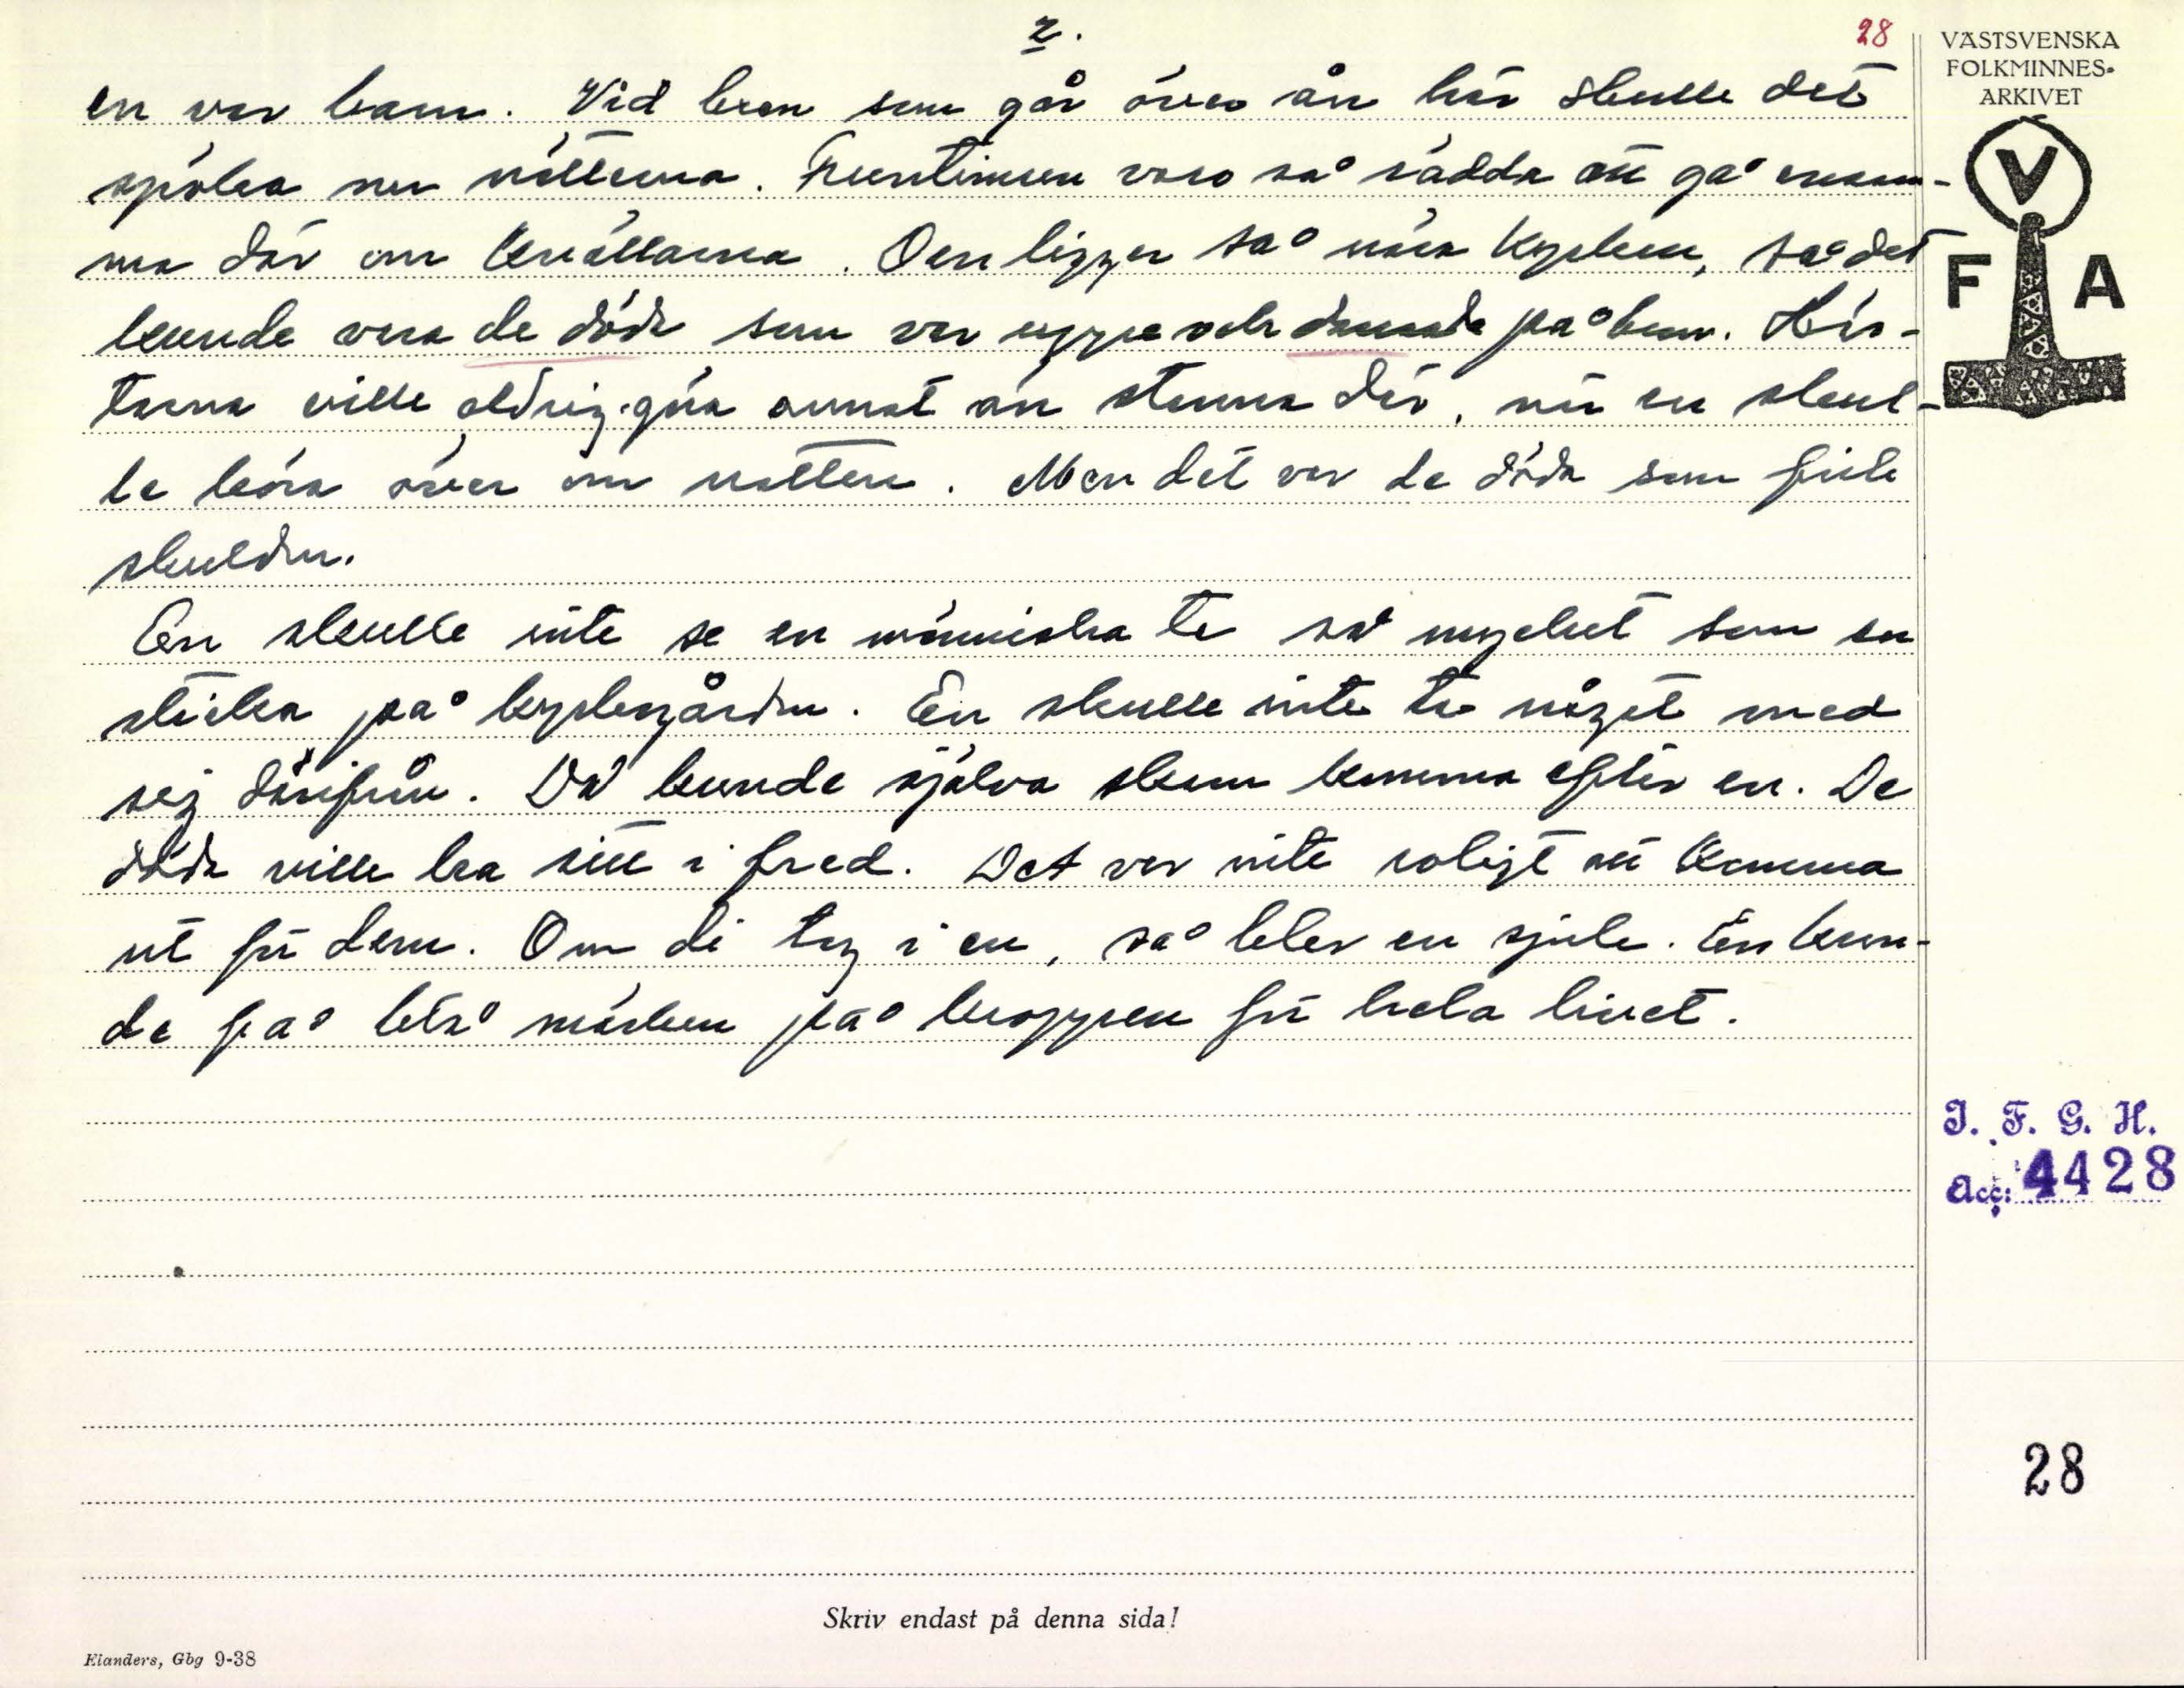 2.
28
en var barn. Vid bron som går över ån här skulle det
spöka om nätterna. Fruntimren voro så rädda att gå ensam-
ma där om kvällarna. Den ligger så nära kyrkan, så det
kunde vara de döda som var uppe och dansade på bron. Häs-
tarna ville aldrig göra annat än stanna där, när en skul-
le köra över om natten. Men det var de döda som fick
skulden.
En skulle inte se en människa ta så mycket som en
sticka på kyrkogården. En skulle inte ta något med
sig därifrån. Då kunde själva skam komma efter en. De
döda ville ha sitt i fred. Det var inte roligt att komma
ut för dem. Om di tog i en, så blev en sjuk. En kun-
de få blå märken på kroppen för hela livet.
VÄSTSVENSKA
FOLKMINNES-
ARKIVET
V
F A
I. F. G. H.
Acc: 4428
28
Skriv endast på denna sida!
Elanders, Gbg 9-38